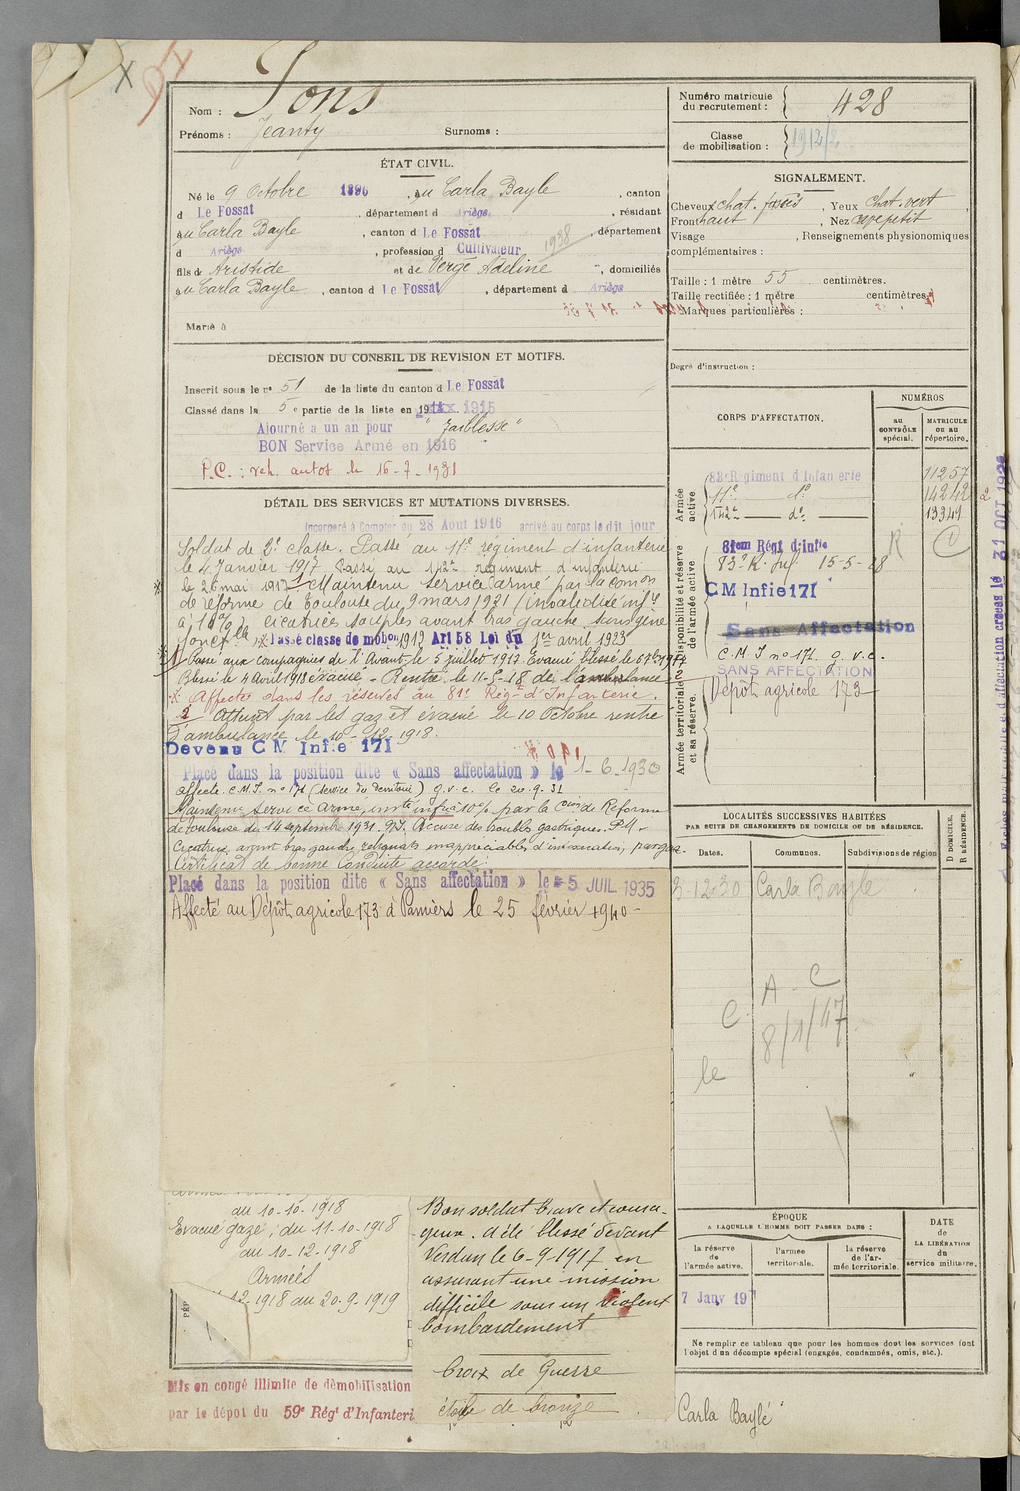 Nom : Pons
Prénoms : Jeanty Surnoms :
Numéro matricule du recrutement : 428
Classe de mobilisation : 1912/2
ÉTAT CIVIL.
Né le 9 Octobre 1896, au Carla Bayle, canton
d Le Fossat, département d Ariège, résidant
au Carla Bayle, canton d Le Fossat, département
d Ariège, profession d Cultivateur 1938
fils de Aristide et de Vergé Adeline, domiciliés
au Carla Bayle, canton d Le Fossat, département d Ariège
Marié à
SIGNALEMENT.
Cheveux chat. foncés, Yeux chat. vert
Front haut, Nez cave petit
Visage , Renseignements physionomiques
complémentaires :
Taille : 1 mètre 55 centimètres.
Taille rectifiée : 1 mètre centimètres.
Marques particulières :
Degré d'instruction :
DÉCISION DU CONSEIL DE REVISION ET MOTIFS.
Inscrit sous le nº 51 de la liste du canton d Le Fossat
Classé dans la 5e partie de la liste en 1915
Ajourné a un an pour "faiblesse"
BON Service Armé en 1916
P.C. : veh. autos le 16-7-1931
DÉTAIL DES SERVICES ET MUTATIONS DIVERSES.
Incorporé à Compter du 28 Aout 1916 arrivé au corps le dit jour
Soldat de 2e classe. Passé au 11e régiment d'infanterie
le 4 Janvier 1917 Passé au 142e régiment d'infanterie
le 26 mai 1917 1 Maintenu service armé par la comon
de réforme de Toulouse du 9 mars 1921 (invalidité infre
à 10%) cicatrices souples avant bras gauche sans gêne
foncelle Passé classe de mobon 1919 Art 58 Loi du 1er avril 1923
1 Passé aux compagnies de l'Avant le 5 juillet 1917. Evacué blessé le 6 7bre 1917
Blessé le 4 Avril 1918 évacué - Rentré le 11-5-18 de l'ambulance 2
Affecté dans les réserves au 81e Régt d'Infanterie.
2 Atteint par les gaz et évacué le 10 Octobre rentré
d'ambulance le 10-12-1918.
Devenu C M Infie 171
Placé dans la position dite « Sans affectation » le 1-6-1930
affecté C.M.I. nº 171 (service du territoire) g.v.c. le 20.9.31
Maintenu service armé, invte infre à 10% par la Con de Réforme
de Toulouse du 14 septembre 1931. P.I. Accuse des troubles gastriques. P.M.
Cicatrice avant bras gauche, reliquats inappréciables d'intoxication par gaz.
Certificat de bonne Conduite accordé.
Placé dans la position dite « Sans affectation » le 5 JUIL 1935
Affecté au Dépôt agricole 173 à Pamiers le 25 février 1940 -
CORPS D'AFFECTATION.
NUMÉROS
AU CONTRÔLE spécial.
MATRICULE OU AU répertoire.
Armée active
83e Régiment d'Infanterie 11257
11e d° 14242
142e d° 13341
Disponibilité et réserve de l'armée active
81em Régt d'infie
83e R. Inf. 15-5-28
CM Infie 171
Sans Affectation
C.M.I nº 171 g.v.c.
SANS AFFECTATION
Armée territoriale et sa réserve.
Dépôt agricole 173
LOCALITÉS SUCCESSIVES HABITÉES
PAR SUITE DE CHANGEMENTS DE DOMICILE OU DE RÉSIDENCE.
Dates. Communes. Subdivisions de région
D DOMICILE. R RÉSIDENCE.
3-12-30 Carla Bayle
C. A C
le 8/1/47
au 10-10-1918
Evacué gazé ; du 11-10-1918
au 10-12-1918
Armées
12-1918 au 20-9-1919
Bon soldat brave et coura-
geux. a été blessé devant
Verdun le 6-9-1917 en
assurant une mission
difficile sous un violent
bombardement
Croix de Guerre
étoile de bronze
ÉPOQUE
A LAQUELLE L'HOMME DOIT PASSER DANS :
la réserve de l'armée active.
l'armée territoriale.
la réserve de l'armée territoriale.
DATE DE LA LIBÉRATION du service militaire.
7 Janv 19
Ne remplir ce tableau que pour les hommes dont les services font
l'objet d'un décompte spécial (engagés, condamnés, omis, etc.).
Mis en congé illimité de démobilisation
par le dépot du 59e Régt d'Infanteri
Carla Baylé